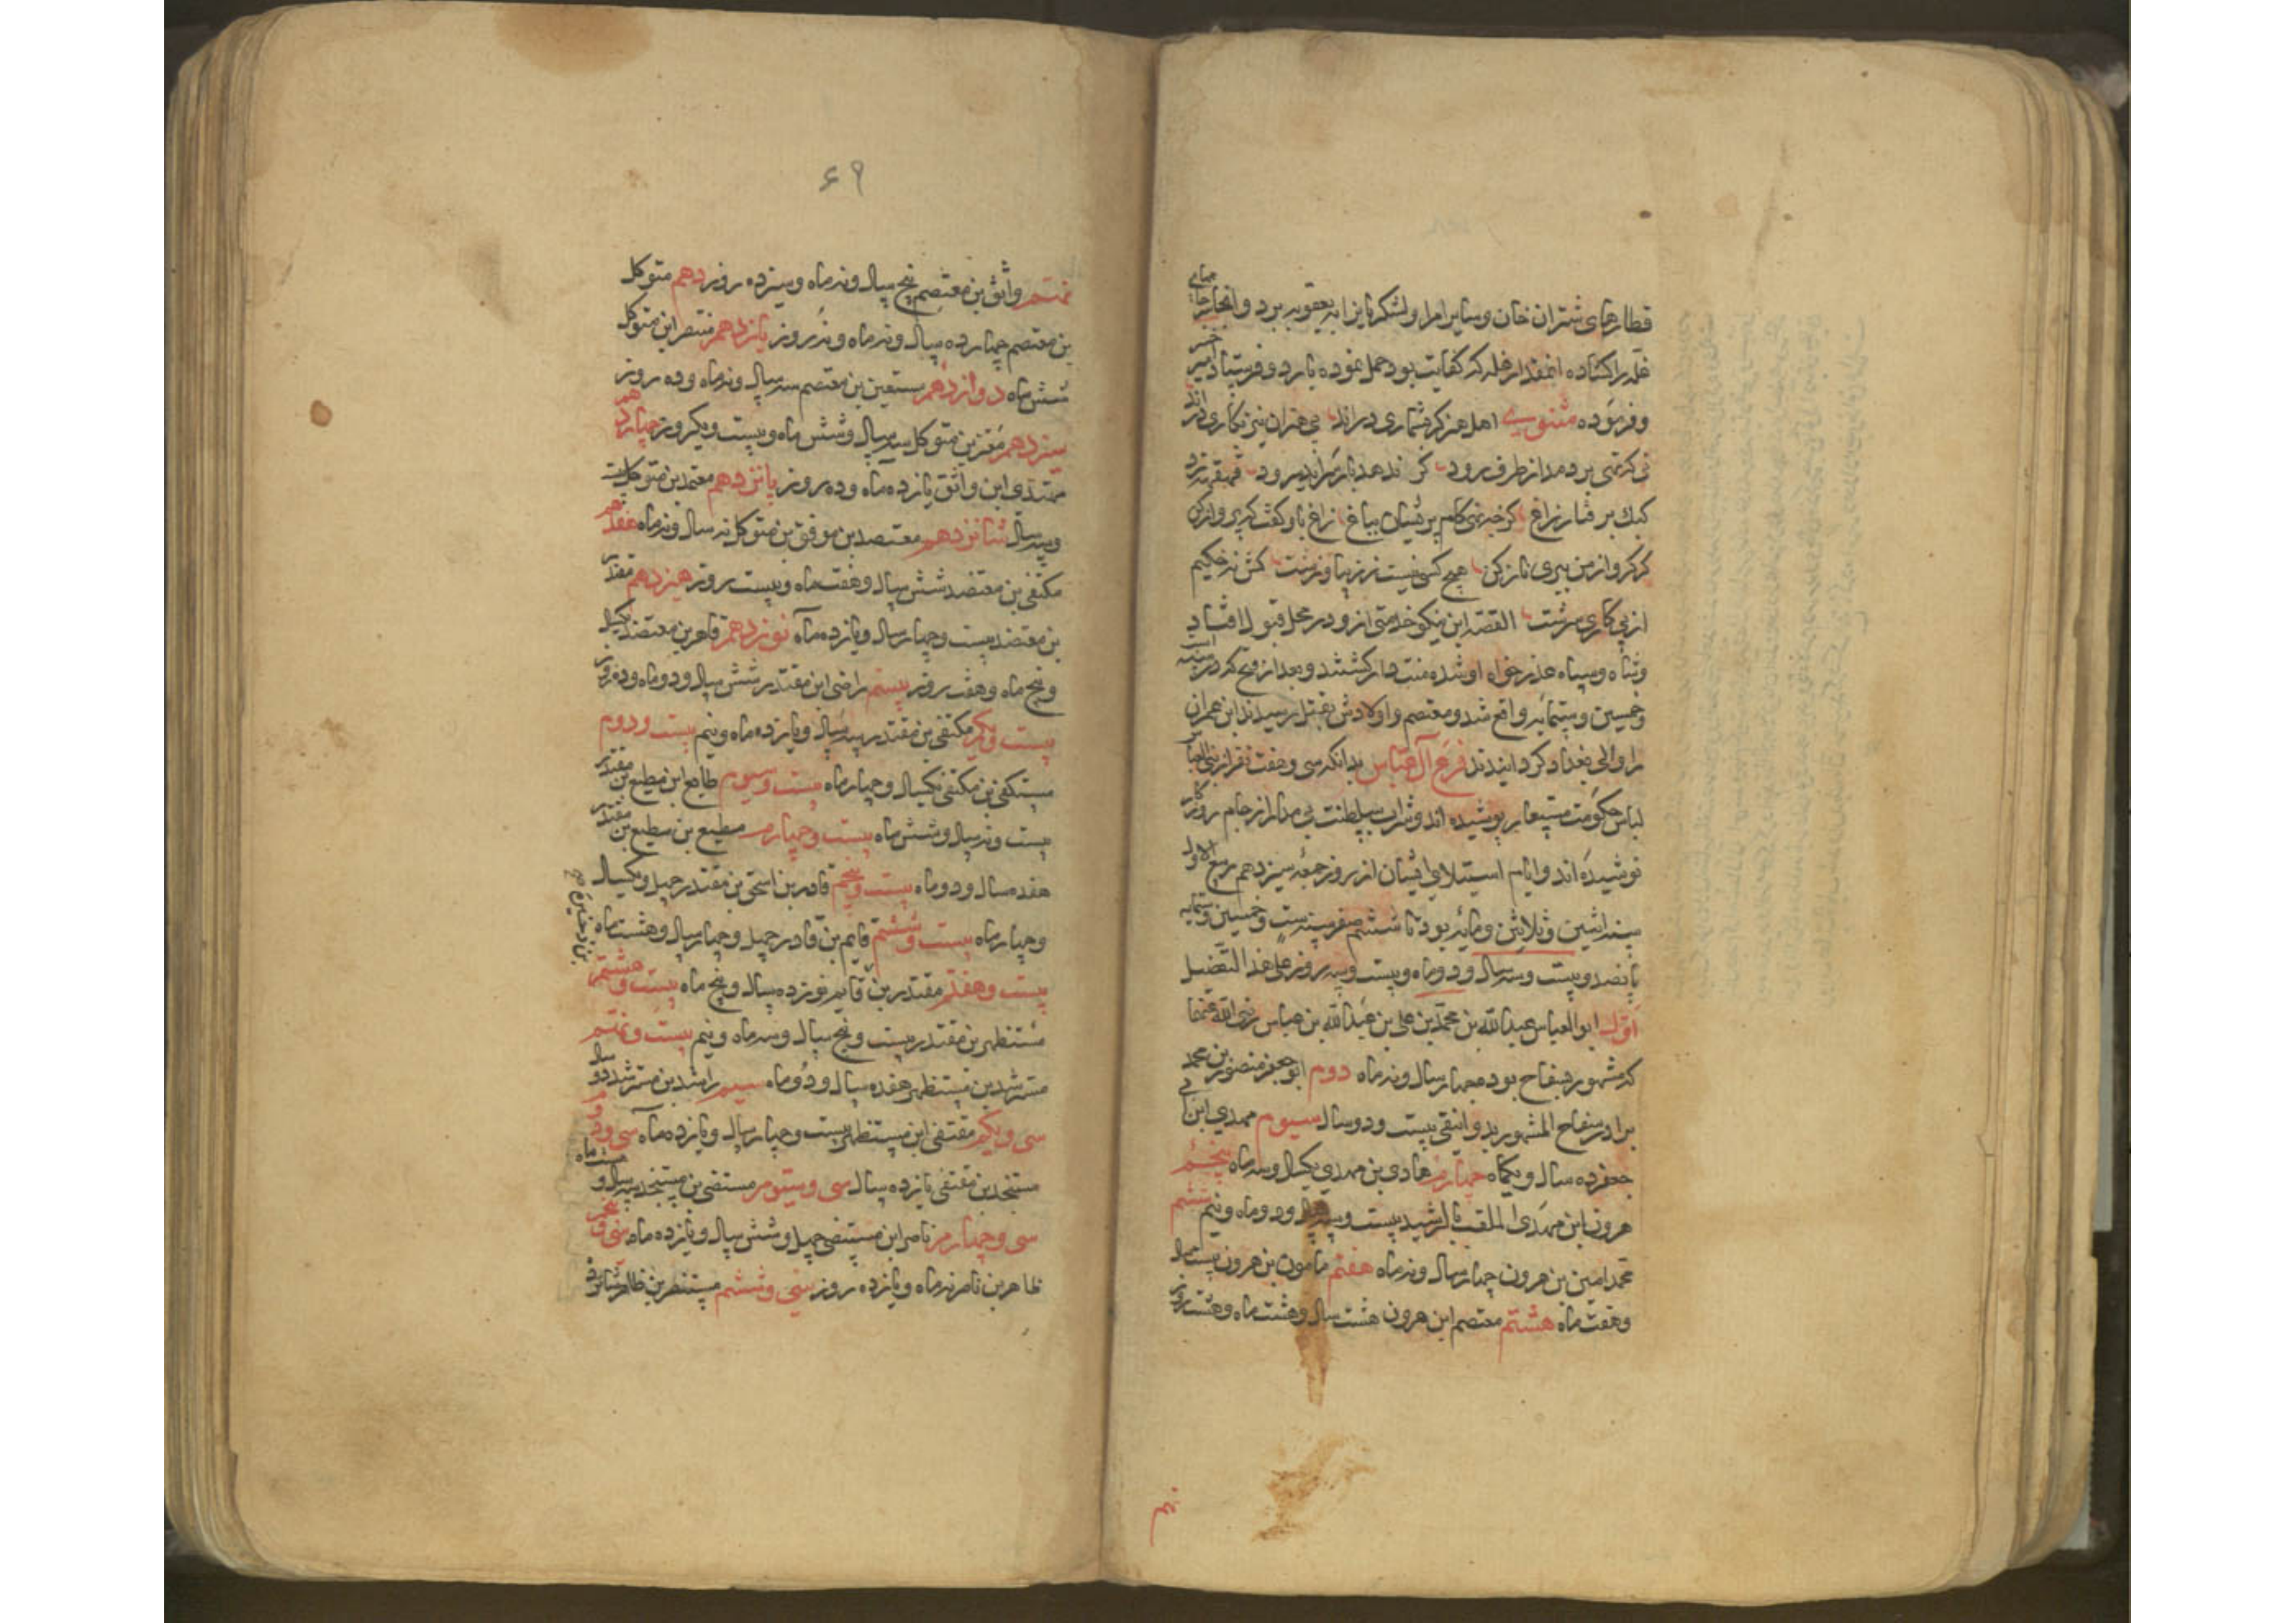 قطارهای شتران خان و سایر امرا و لشکریانرا به یعقوبه برد و انجا چاههای
غله را کشاده انمقدار غله که کفایت بود حمل نموده بارد و فرستاد امیر خسرو
و فرموده مثنوی اهل هنر کرشماری درند بی هنران نیز بکاری درند
کبک برفتار زاغ کر خبری کام بر نشان بباغ زاغ باو کفت که پرواز کن
کر کروازمن بپری ناز کن هیچ کسی نیست نه زیبا و نه زشت کش نه حکیم
از پی کاری سرشت القصه این نیکو خدمتی ازو در محل قبول افتاد
و شاه و سپاه عذر خواه او شده منت دار کشتند و بعد از فتح که در سنه ست
و خمسین و ستمائه واقع شد و معتصم و اولادش بقتل رسیدند ابن عمران
را والی بغداد کردانیدند فرع آل عباس بدانکه سی و هفت نفر از بنی العباس
لباس حکومت مستعار پوشیده اند و شراب سلطنت بی مدار از جام روزکار
نوشیده اند و ایام استیلای ایشان از روز جمعه سیزدهم ربیع الاول
سنه اثنین و ثلاثین و مایه بود تا ششم صفر سنه ست و خمسین و ستمایه
پانصد و بیست و سه سال و دو ماه و بیست و سه روز علی هذا التفصیل
اول ابو العباس عبدالله بن محمد بن علی بن عبدالله بن عباس رضی الله عنهما
که مشهور بسفاح بود چهار سال و نه ماه دوم ابو جعفر منصور بن محمد
برادر سفاح المشهور بدوانیقی بیست و دو سال سیوم مهدی ابن ابی
جعفر ده سال و یکماه چهارم هادی بن مهدی یکسال و سه ماه پنجم
هرون ابن مهدی الملقب بالرشید بیست و سه سال و دو ماه و نیم ششم
محمد امین بن هرون چهار سال و نه ماه هفتم مامون بن هرون بیست سال
و هفت ماه هشتم معتصم ابن هرون هشت سال و هشت ماه و هشت روز
نهم
۶۹
نهم واثق بن معتصم پنج سال و نه ماه و سیزده روز دهم متوکل
بن معتصم چهارده سال و نه ماه و نه روز یازدهم منتصر ابن متوکل
شش ماه دوازدهم مستعین بن معتصم سه سال و نه ماه و ده روز
سیزدهم معتز بن متوکل سه سال و شش ماه و بیست و یکروز چهاردهم
مهتدی ابن واثق یازده ماه و ده روز پانزدهم معتمد بن متوکل بیست
و سه سال شانزدهم معتضد بن موفق بن متوکل نه سال و نه ماه هفدهم
مکتفی بن معتضد شش سال و هفت ماه و بیست روز هیزدهم مقتدر
بن معتضد بیست و چهار سال و یازده ماه نوزدهم قاهر بن معتضد یکسال
و پنج ماه و هفت روز بیستم راضی ابن مقتدر شش سال و دو ماه و ده روز
بیست و یکم مکتفی بن مقتدر سه سال و یازده ماه و نیم بیست و دوم
مستکفی بن مکتفی یکسال و چهار ماه بیست و سیوم طایع ابن مطیع بن مقتدر
بیست و نه سال و شش ماه بیست و چهارم مطیع بن مطیع بن مقتدر
هفده سال و دو ماه بیست و پنجم قادر بن اسحق بن مقتدر چهل و یکسال
و چهار ماه بیست و ششم قایم بن قادر چهل و چهار سال و هشت ماه
بیست و هفتم مقتدر بن قایم نوزده سال و پنج ماه بیست و هشتم
مستظهر بن مقتدر بیست و پنج سال و سه ماه و نیم بیست و نهم
مسترشد بن مستظهر هفده سال و دو ماه سیم راشد بن مسترشد دو سال
سی و یکم مقتفی ابن مستظهر بیست و چهار سال و یازده ماه سی و دوم
مستنجد بن مقتفی یازده سال سی و سیوم مستضی بن مستنجد سه سال و ماه
سی و چهارم ناصر ابن مستضی چهل و شش سال و یازده ماه سی و پنجم
ظاهر بن ناصر نه ماه و یازده روز سی و ششم مستنصر بن ظاهر شانزده